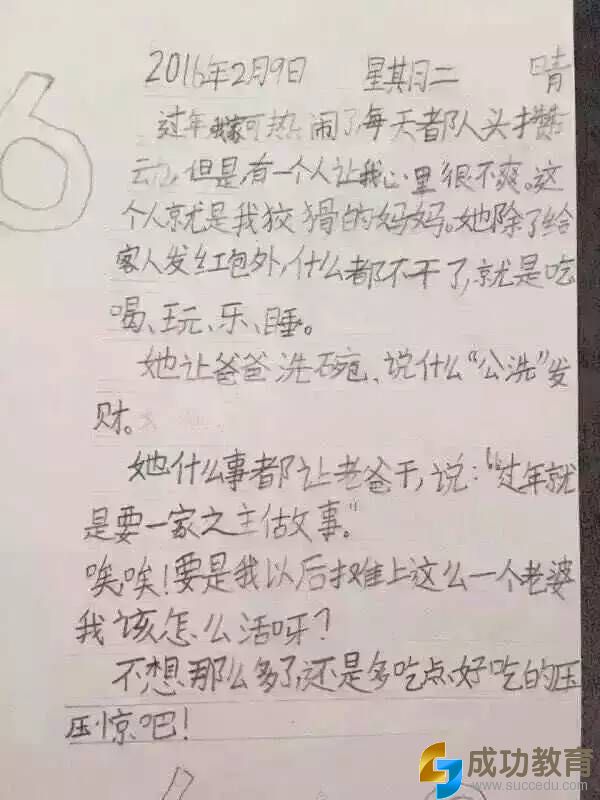 6
2016年2月9日 星期二 晴
过年我家可热闹了,每天都队头才赞
动,但是,有一个人让我心里很不爽。这
个人就是我狡猾的妈妈。她除了给
客人发红包外,什么都不干了,就是吃
喝、玩、乐、睡。
她让爸爸洗碗、说什么“公洗”发
财。
她什么事都让老爸干,说:“过年就
是要一家之主做事。”
唉,唉!要是我以后摊上这么一个老婆
我该怎么活呀?
不想那么多了,还是多吃点好吃的压
压惊吧!
成功教育
www.succedu.com